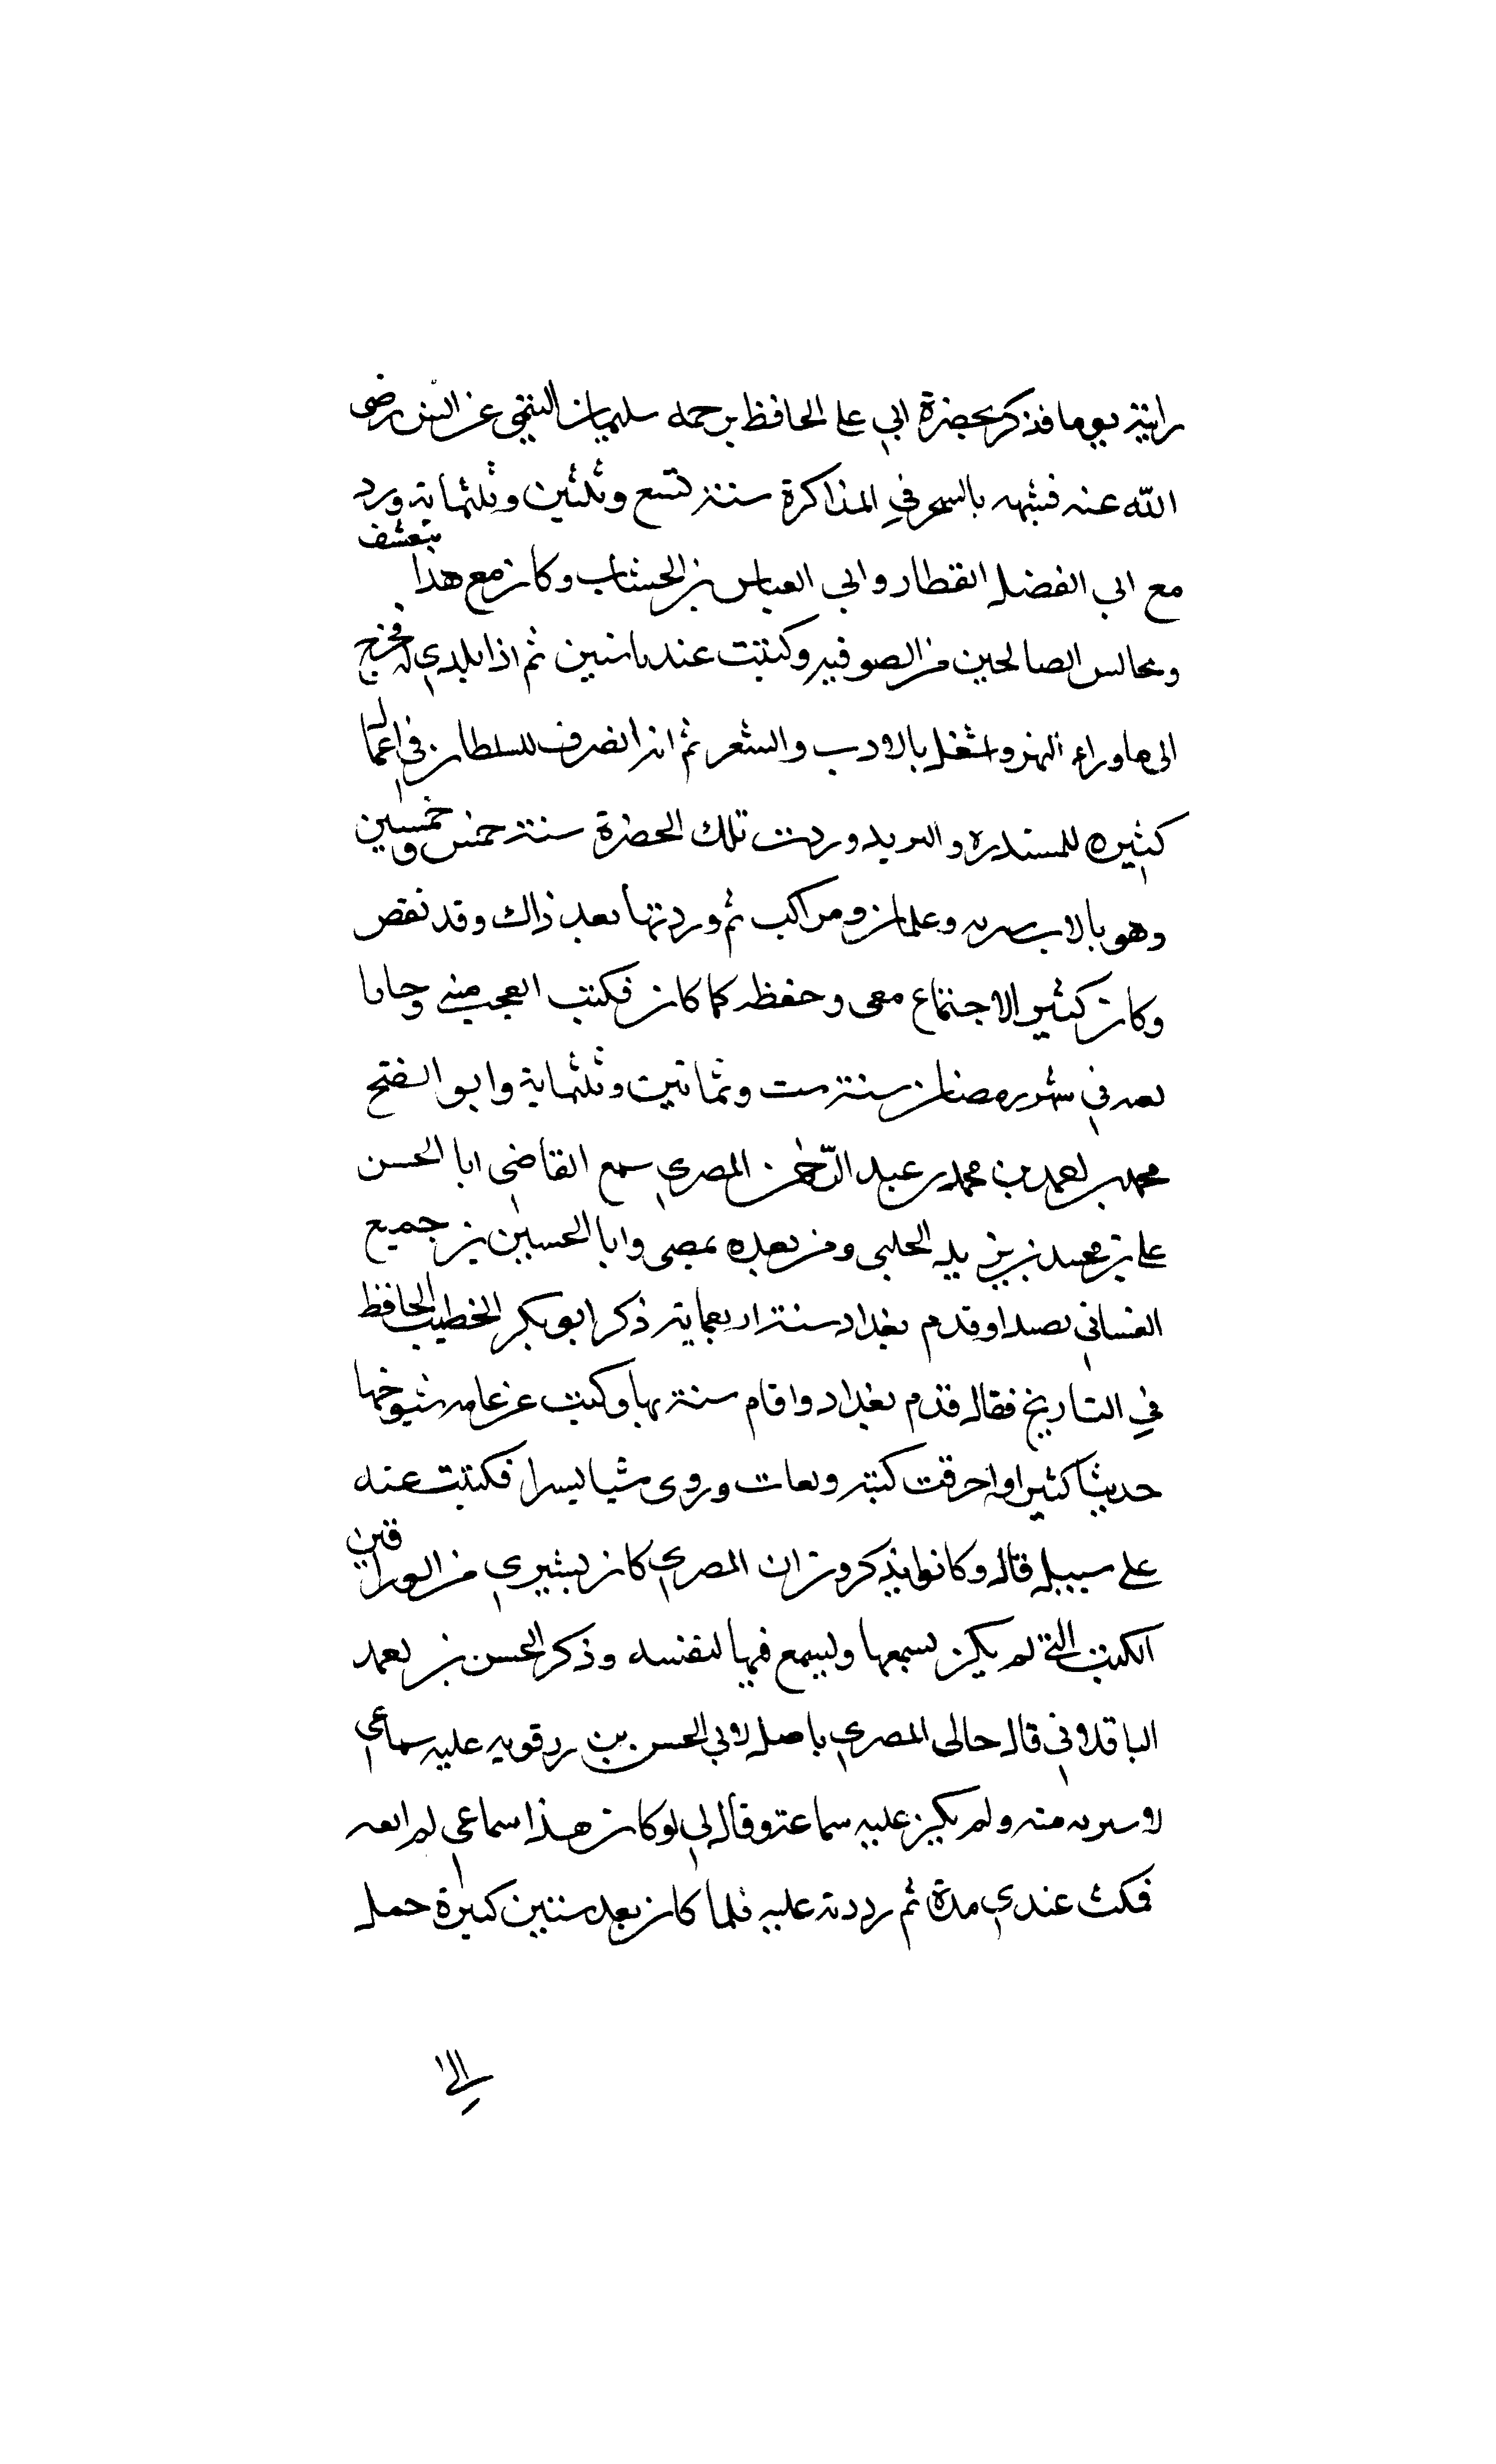 رايته يوما فذكر بحضرة ابي على الحافظ ترجمه سليمان التيمي عن انس رضى
الله عنه فشبهه بالسحر في المذاكرة سنة تسع وثلثين وثلثماية ورد
مع ابي الفضل القطار وابي العباس بن الخشاب وكان مع هذا يتعشف
ويجالس الصالحين من الصوفيه وكتبت عند ما سنين ثم اذا بلدي له فخرج
الى ما وراء النهر واشتغل بالادب والشعر ثم انه انصرف للسلطان في اعمال
كثيره للبندره والبريد وردت تلك الحضرة سنة خمس وخمسين
وهو بالاب سريه وعلمان ومراكب ثم وردتها بعد ذاك وقد نقص
وكان كثير الاجتماع معى وحفظه كما كان فكتب العجب منى وجانا
نعيه في شهر رمضان سنة ست وثمانين وثلثماية وابو الفتح
محمد بن احمد بن محمد بن عبد الرحمن المصري سمع القاضى ابا الحسن
على بن محمد بن يزيد الحلبى ومن بعده بمصر وابا الحسين بن جميع
الغساني بصيدا وقدم بغداد سنة اربعماية ذكر ابو بكر الخطيب الحافظ
في التاريخ فقال قدم بغداد واقام سنة بها وكتب عن عامه شيوخها
حديثا كثيرا واحرقت كتبه وبعات وروى شيا يسيرا فكتبت عنه
على سبيل قال وكانوا يذكرون ان المصري كان يشتري من الوراقين
الكتب التي لم يكن يسمعها ويسمع فيها لنفسه وذكر الحسن بن احمد
الباقلاني قال جانى المصري باصل لابي الحسن بن رزقويه عليه سماعي
لاشتريه منه ولم يكن عليه سماعه وقال لي لو كان هذا سماعي لم ابعه
فمكث عندي مدة ثم رددته عليه فلما كان بعد سنين كثيرة حمل
الى